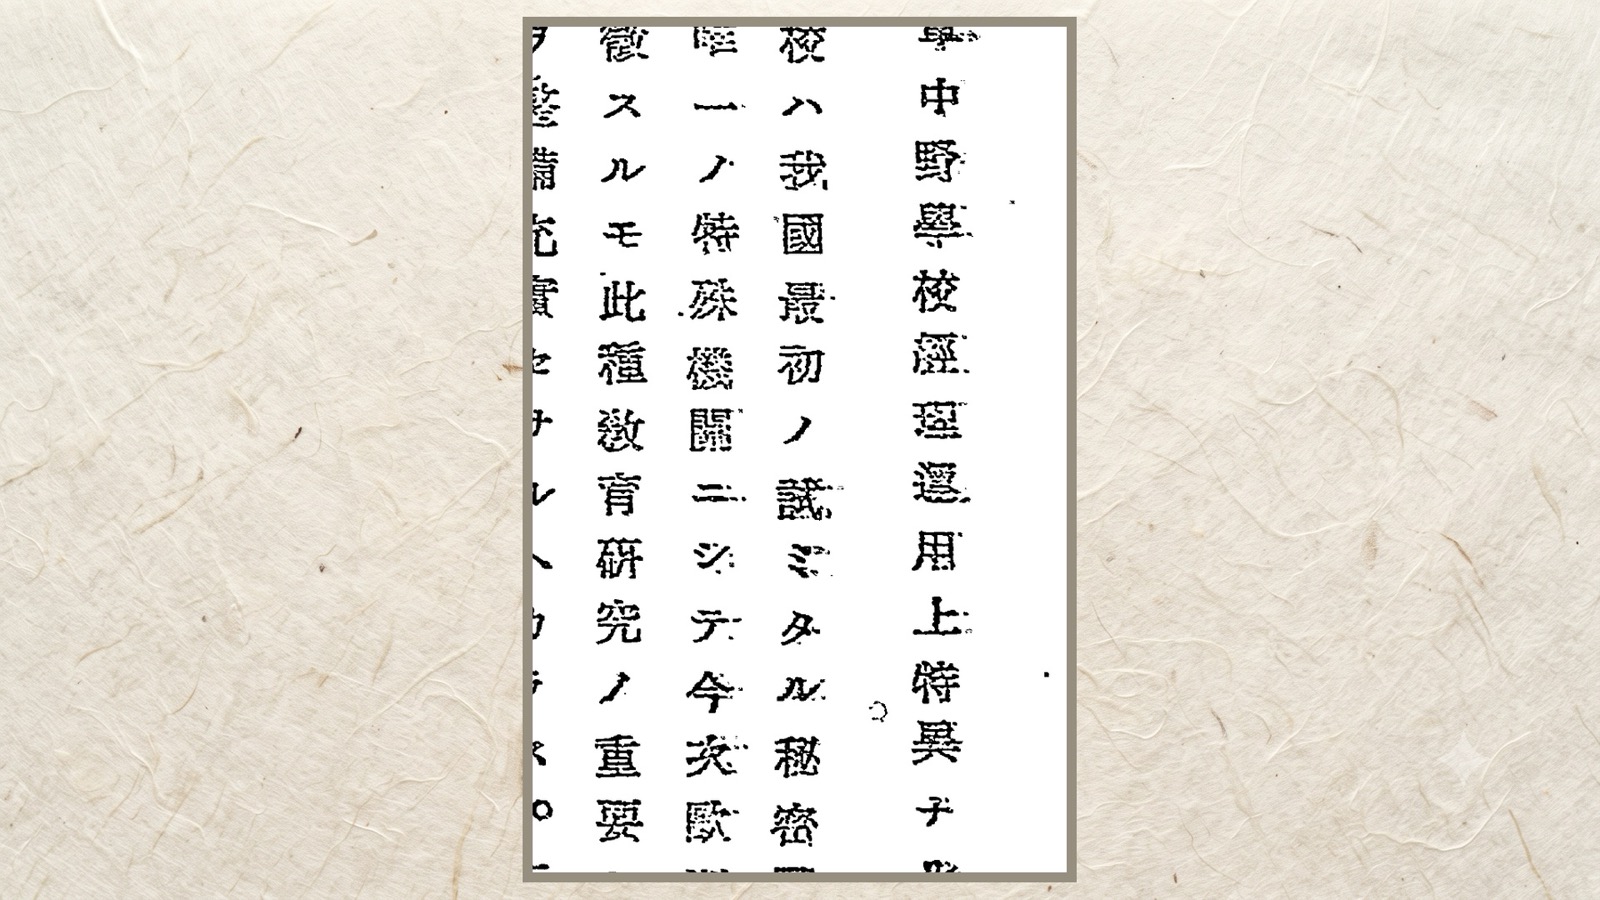 中野學校經理運用上特異ナ
校ハ我國最初ノ試ミタル秘密
唯一ノ特殊機關ニシテ今次歐
徵スルモ此種敎育研究ノ重要
ヲ整備充實セサルヘカラス。